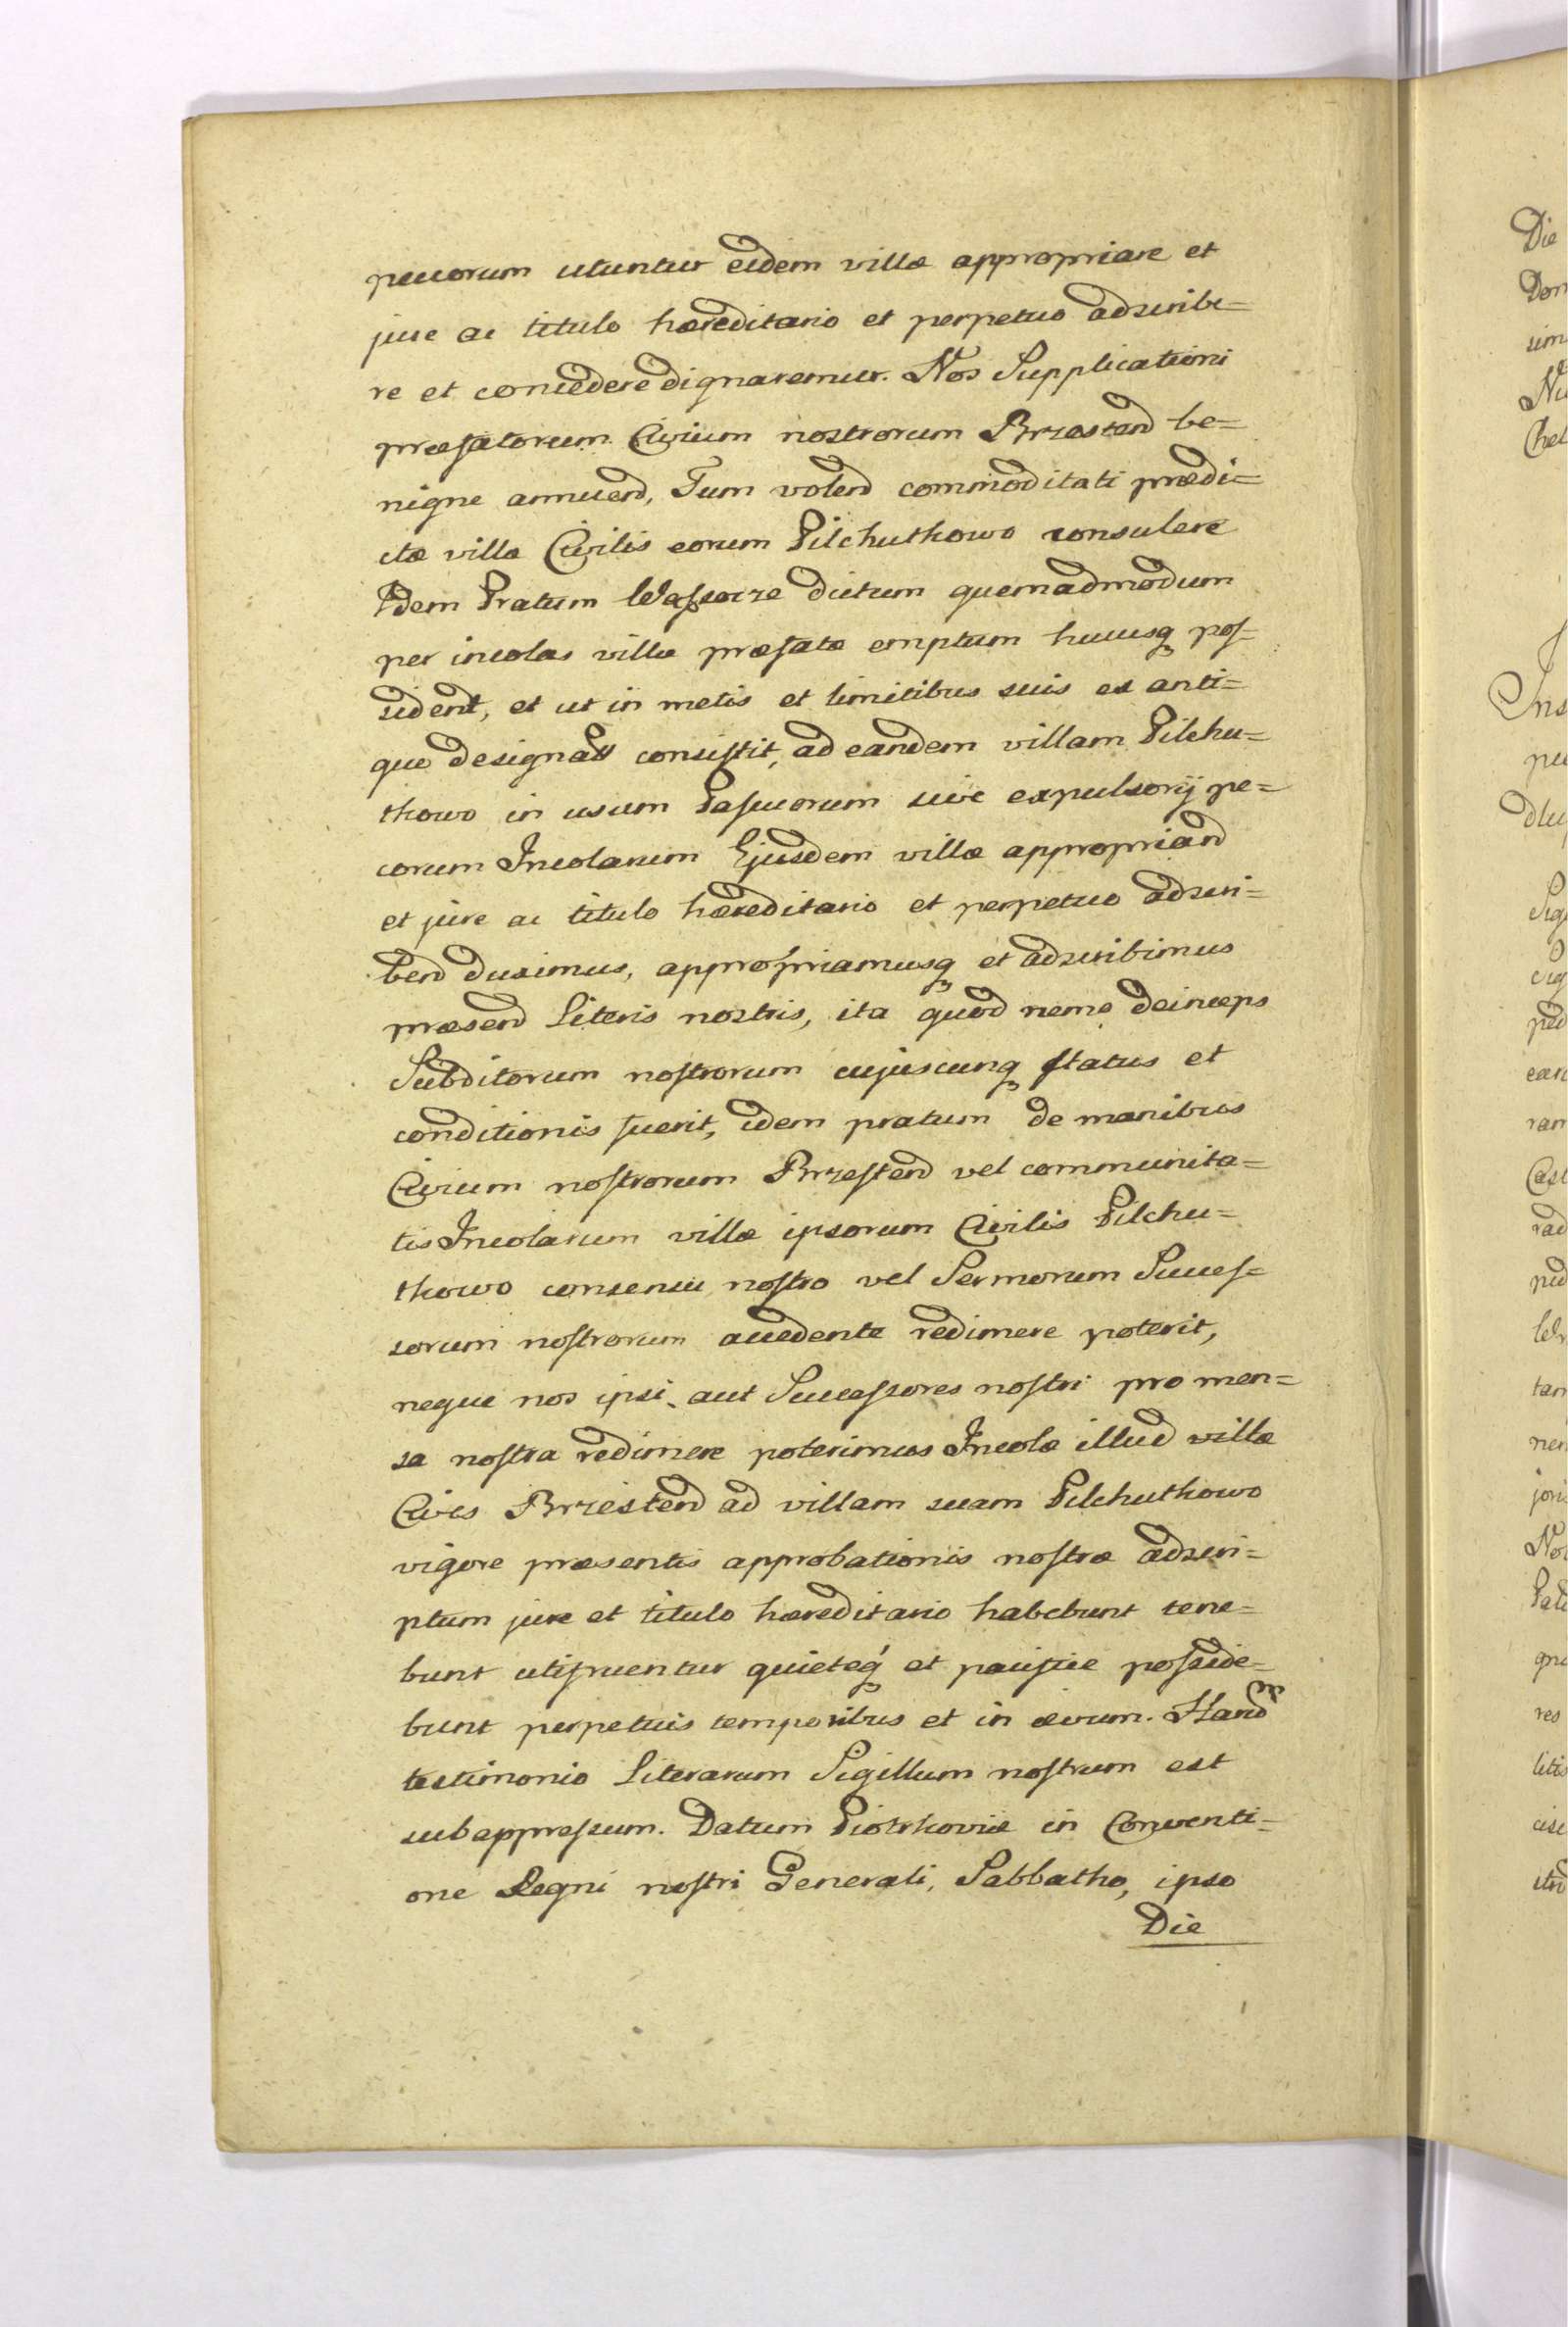 pecuorum utuntur eidem villæ appropriare et
jure ac titulo hæreditario et perpetuo adscribe=
re et concedere dignaremur. Nos Supplicationi
præfatorum Civium nostrorum Brzestend be=
nigne annuend, Tum volend commoditati prædi=
ctæ villæ Civilis eorum Pilchuthowo consulere
Idem Pratum Wasosze dictum quemadmodum
per incolas villæ præfatæ emptum hucusq pos=
sident, et ut in metis et limitibus suis ex anti=
quo designatt consistit, ad eandem villam Pilchu=
thowo in usum Pascuorum sive expulsorij pe=
corum Incolarum Ejusdem villæ appropriand
et jure ac titulo hæreditario et perpetuo adscri=
bend duximus, appropriamusq et adscribimus
præsend Literis nostris, ita quod nemo deinceps
Subditorum nostrorum cujuscunq status et
conditionis fuerit, idem pratum de manibus
Civium nostrorum Brzestend vel communita=
tis Incolarum villæ ipsorum Civilis Pilchu=
thowo consensu nostro vel Sermorum Succes=
sorum nostrorum accedente redimere poterit,
neque nos ipsi aut Successores nostri pro men=
sa nostra redimere poterimus Incolæ illud villæ
Cives Brzestend ad villam suam Pilchuthowo
vigore præsentis approbationis nostræ adscri=
ptum jure et titulo hæreditario habebunt tene=
bunt utifruentur quieteq et pacifice posside=
bunt perpetuis temporibus et in ævum. Hand
testimonio Literarum Sigillum nostrum est
subappressum. Datum Piotrkoviæ in Conventi=
one Regni nostri Generali, Sabbatho, ipso
Die
Die
Dom